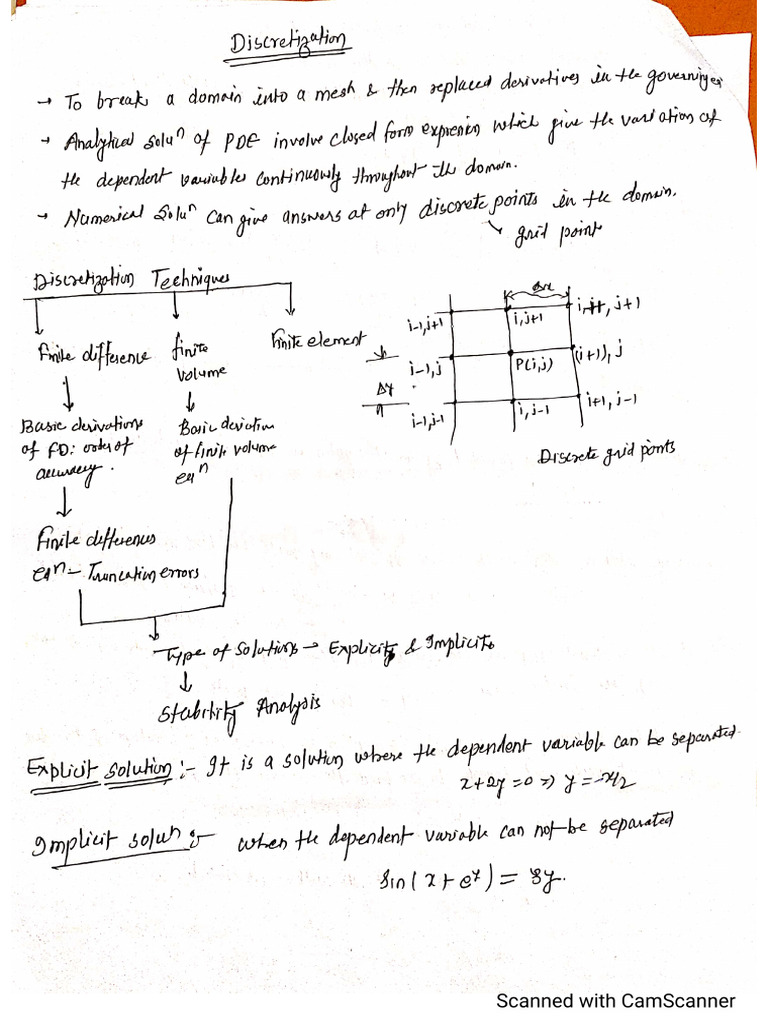 Discretization
→ To break a domain into a mesh & then replaced derivatives in the governing
→ Analytical Soluⁿ of PDE involve closed form expression which give the variation of
the dependent variables continuously throughout the domain.
→ Numerical Soluⁿ can give answers at only discrete points in the domain.
↘ grid point
Discretization Techniques
Finite difference
finite volume
Finite element
Basic derivations of FD: order of accuracy.
Basic derivation of finite volume eqⁿ
Finite differences
eqⁿ - Truncation errors
Δx
i-1,j+1
i,j+1
i+1,j+1
i-1,j
P(i,j)
(i+1),j
Δy
i-1,j-1
i,j-1
i+1,j-1
Discrete grid points
Type of solutions → Explicity & Implicits
Stability Analysis
Explicit solution :- It is a solution where the dependent variable can be separated.
x+2y=0 ⇒ y=-x/2
Implicit soluⁿ :- When the dependent variable can not be separated
Sin(x+eʸ) = 3y.
Scanned with CamScanner